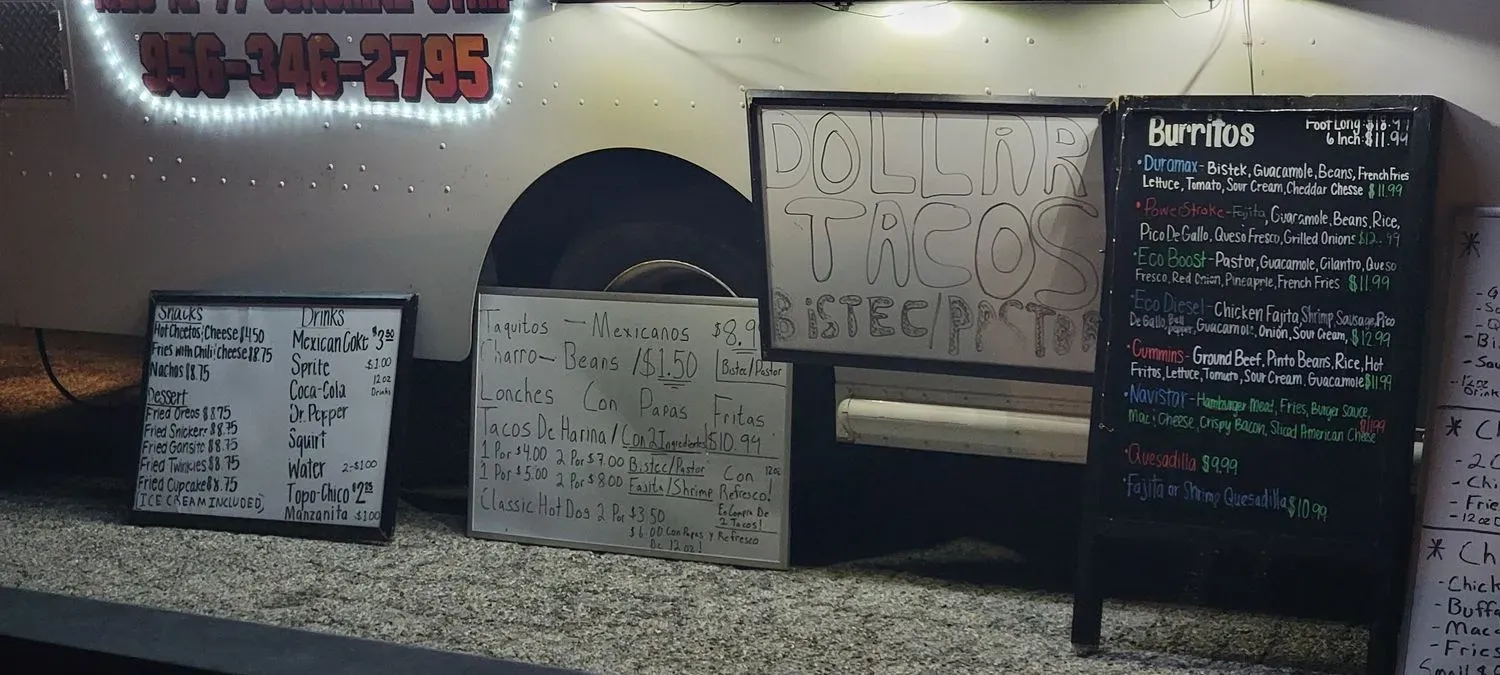 956-346-2795
Snacks
Hot Cheetos/Cheese $4.50
Fries with Chili/Cheese $8.75
Nachos $8.75
Dessert
Fried Oreos $8.75
Fried Snickers $8.75
Fried Gansito $8.75
Fried Twinkies $8.75
Fried Cupcake $8.75
(ICE CREAM INCLUDED)
Drinks
Mexican Coke $3.50
Sprite $1.00
Coca-Cola 12oz Drinks
Dr. Pepper
Squirt
Water 2-$1.00
Topo-Chico $2.25
Manzanita $1.00
Taquitos — Mexicanos $8.9
Charro — Beans / $1.50 Bistec/Pastor
Lonches Con Papas Fritas
Tacos De Harina / Con 2 Ingredientes $10.99
1 Por $4.00 2 Por $7.00 Bistec/Pastor Con 12oz
1 Por $5.00 2 Por $8.00 Fajita/Shrimp Refresco!
Classic Hot Dog 2 Por $3.50 En Compra De
2 Tacos!
$6.00 Con Papas y Refresco
De 12oz!
DOLLAR
TACOS
BISTEC/PASTOR
Burritos
Foot Long $18.99
6 Inch: $11.99
•Duramax- Bistek, Guacamole, Beans, French Fries
Lettuce, Tomato, Sour Cream, Cheddar Chesse $11.99
•PowerStroke-Fajita, Guacamole, Beans, Rice,
Pico De Gallo, Queso Fresco, Grilled Onions $12.99
•Eco Boost-Pastor, Guacamole, Cilantro, Queso
Fresco, Red Onion, Pineapple, French Fries $11.99
•Eco Diesel-Chicken Fajita, Shrimp, Sausage, Pico
De Gallo, Bell Pepper, Guacamole, Onion, Sour Cream, $12.99
•Cummins-Ground Beef, Pinto Beans, Rice, Hot
Fritos, Lettuce, Tomato, Sour Cream, Guacamole $11.99
•Navistar-Hamburger Meat, Fries, Burger Sauce,
Mac & Cheese, Crispy Bacon, Sliced American Cheese $11.99
•Quesadilla $9.99
•Fajita or Shrimp Quesadilla $10.99